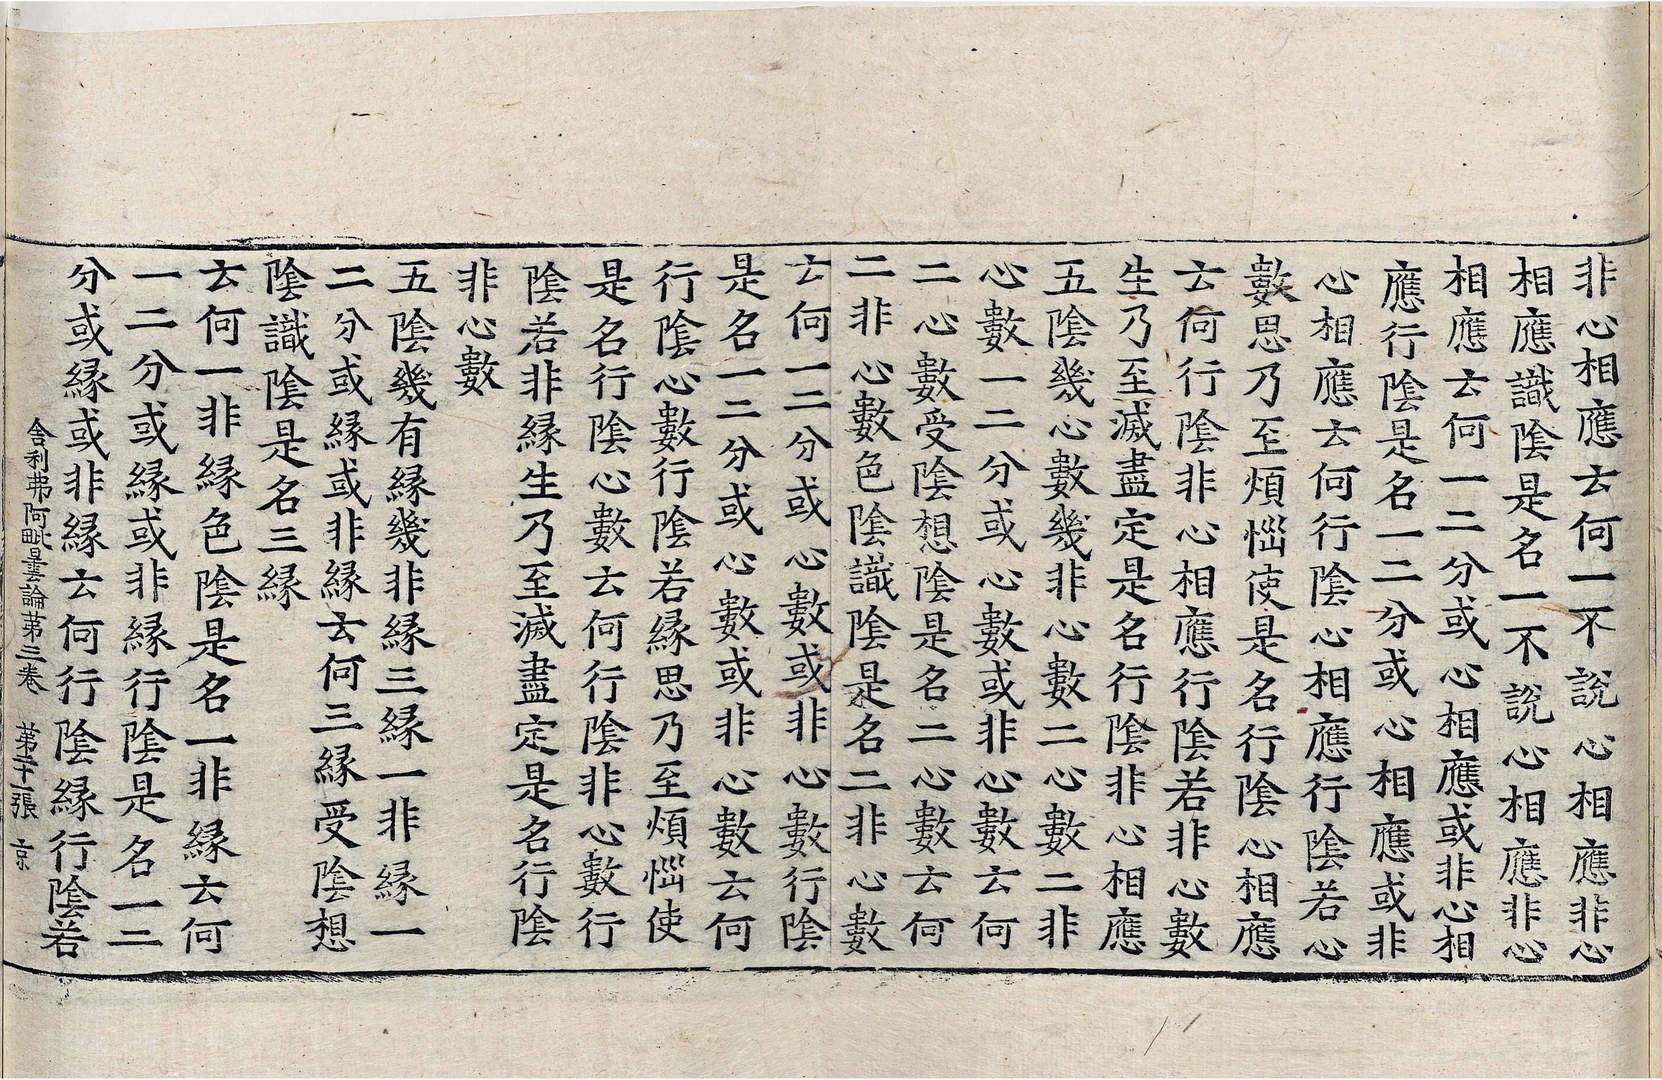 非心相應云何一不說心相應非心
相應識陰是名一不說心相應非心
相應云何一二分或心相應或非心相
應行陰是名一二分或心相應或非
心相應云何行陰心相應行陰若心
數思乃至煩惱使是名行陰心相應
云何行陰非心相應行陰若非心數
生乃至滅盡定是名行陰非心相應
五陰幾心數幾非心數二心數二非
心數一二分或心數或非心數云何
二心數受陰想陰是名二心數云何
二非心數色陰識陰是名二非心數
云何一二分或心數或非心數行陰
是名一二分或心數或非心數云何
行陰心數行陰若縁思乃至煩惱使
是名行陰心數云何行陰非心數行
陰若非縁生乃至滅盡定是名行陰
非心數
五陰幾有縁幾非縁三縁一非縁一
二分或縁或非縁云何三縁受陰想
陰識陰是名三縁
云何一非縁色陰是名一非縁云何
一二分或縁或非縁行陰是名一二
分或縁或非縁云何行陰縁行陰若
舍利弗阿毗曇論第三卷 第二十一張 京